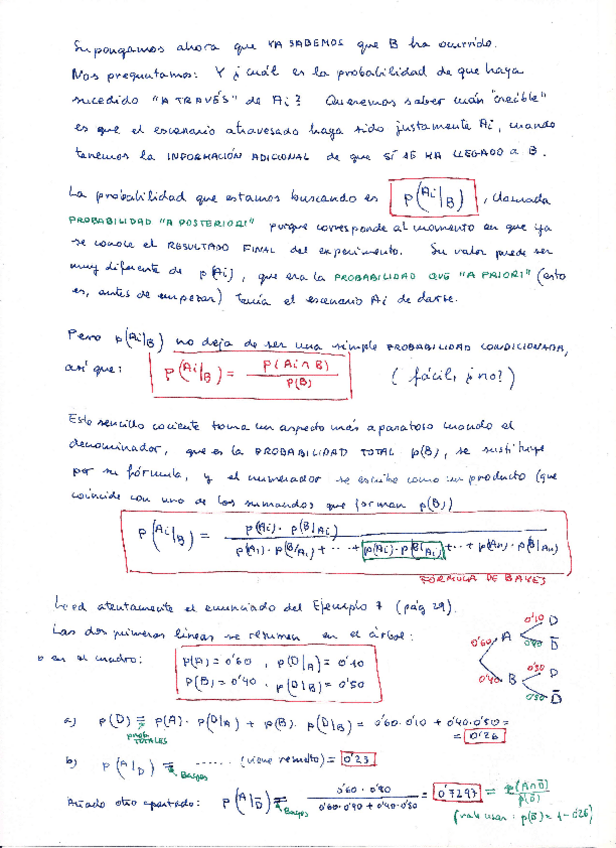 Supongamos ahora que YA SABEMOS que B ha ocurrido.
Nos preguntamos: Y ¿cuál es la probabilidad de que haya
sucedido "A TRAVÉS" de Ai? Queremos saber cuán "creíble"
es que el escenario atravesado haya sido justamente Ai, cuando
tenemos la INFORMACIÓN ADICIONAL de que SÍ SE HA LLEGADO a B.
La probabilidad que estamos buscando es p(Ai|B), llamada
PROBABILIDAD "A POSTERIORI" porque corresponde al momento en que ya
se conoce el RESULTADO FINAL del experimento. Su valor puede ser
muy diferente de p(Ai), que era la PROBABILIDAD QUE "A PRIORI" (esto
es, antes de empezar) tenía el escenario Ai de darse.
Pero p(Ai|B) no deja de ser una simple PROBABILIDAD CONDICIONADA,
así que: p(Ai|B) = p(Ai∩B) / p(B) (fácil, ¿no?)
Este sencillo cociente toma un aspecto más aparatoso cuando el
denominador, que es la PROBABILIDAD TOTAL p(B), se sustituye
por su fórmula, y el numerador se escribe como un producto (que
coincide con uno de los sumandos que forman p(B))
p(Ai|B) = p(Ai)·p(B|Ai) / p(A1)·p(B|A1)+ ··· + p(Ai)·p(B|Ai) + ·· + p(An)·p(B|An)
FÓRMULA DE BAYES
Leed atentamente el enunciado del Ejemplo 7 (pág 29).
Las dos primeras líneas se resumen en el árbol:
o en el cuadro: p(A) = 0'60 , p(D|A) = 0'10
p(B) = 0'40 . p(D|B) = 0'50
0'60 A 0'10 D
0'90 D̄
0'40 B 0'50 D
0'50 D̄
a) p(D) = p(A)·p(D|A) + p(B)·p(D|B) = 0'60·0'10 + 0'40·0'50 =
prob. TOTALES
= 0'26
b) p(A|D) = ······ (viene resuelto) = 0'23
Bayes
Añado otro apartado: p(A|D̄) = 0'60·0'90 / 0'60·0'90 + 0'40·0'50 = 0'7297 = p(A∩D̄) / p(D̄)
Bayes
(vale usar: p(D̄) = 1-0'26)